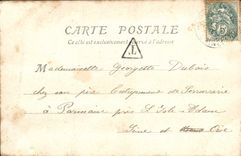 CARTE POSTALE
Ce côté est exclusivement réservé à l'adresse
T
Mademoiselle Georgette Dubois
chez son père Entrepreneur de Serrurerie
à Parmain près L'Isle-Adam
Seine et Oise